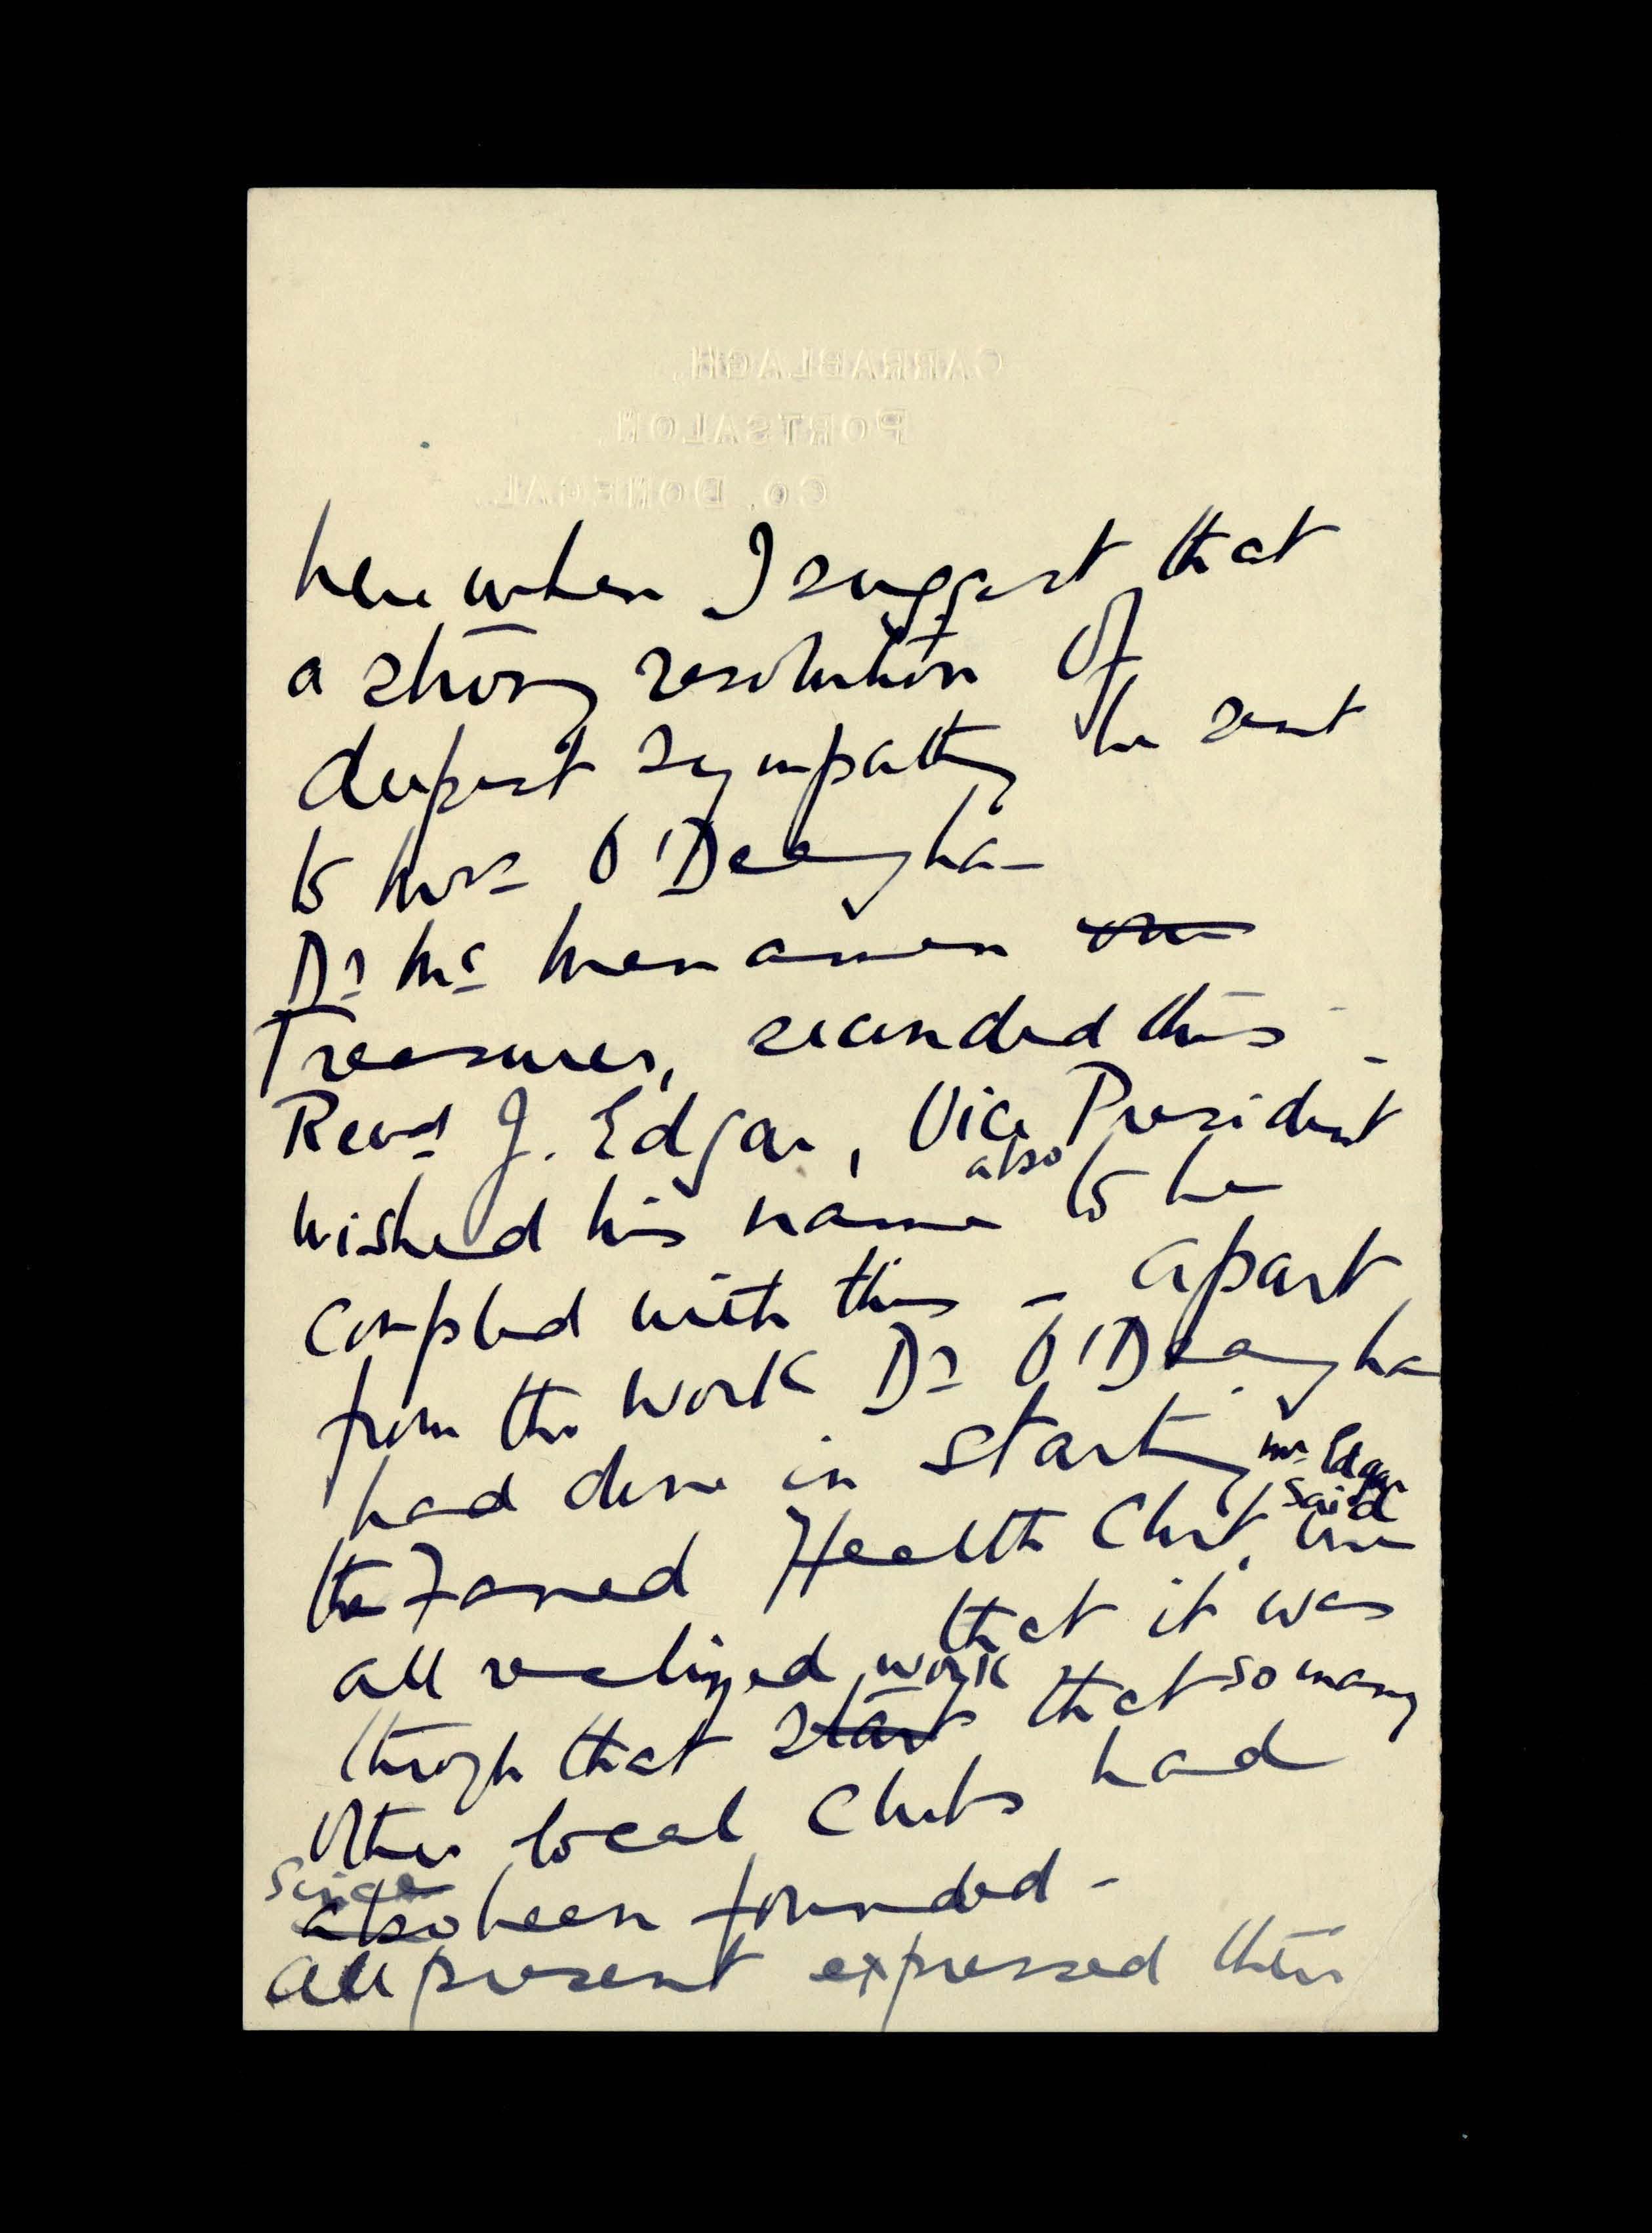 CARRABLAGH,
PORTSALON,
CO. DONEGAL.
here when I suggest that
a strong resolution of
deepest sympathy be sent
to Mrs O'Deagha
Dr Mc Menamen
Treasurer, seconded this -
Revd J. Edgar, Vice President
also
wished his name to be
coupled with this - apart
from the work Dr O'Deagha
had done in starting Mr Edgar
said
the Faned Health Club, we
all realized that it was
work
through that start that so many
other local Clubs had
since
also been founded -
All present expressed their